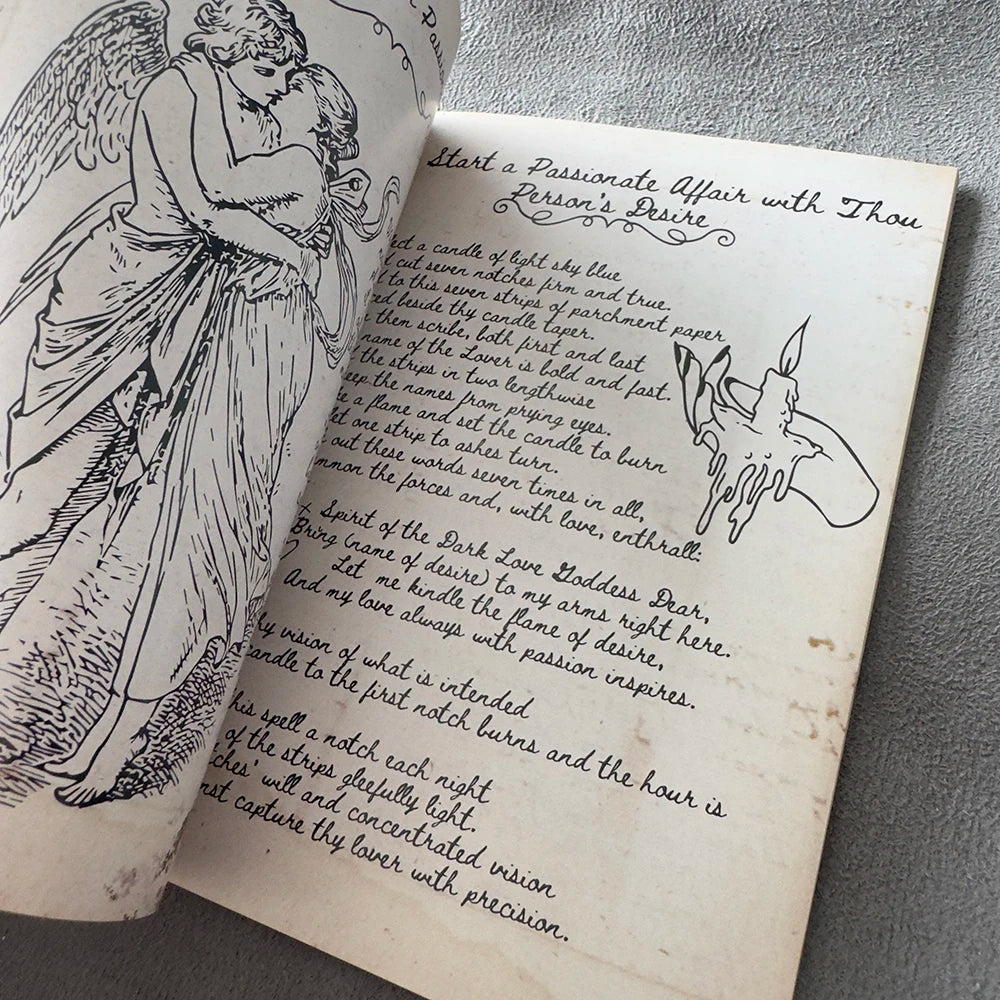 Passi
Start a Passionate Affair with Thou
Person's Desire
ect a candle of light sky blue
d cut seven notches firm and true.
d to this seven strips of parchment paper
ced beside thy candle taper.
n them scribe, both first and last
name of the Lover is bold and fast.
the strips in two lengthwise
eep the names from prying eyes.
e a flame and set the candle to burn
let one strip to ashes turn.
out these words seven times in all,
mmon the forces and, with love, enthrall:
x Spirit of the Dark Love Goddess Dear,
Bring (name of desire) to my arms right here.
Let me kindle the flame of desire,
And my love always with passion inspires.
hy vision of what is intended
andle to the first notch burns and the hour is
his spell a notch each night
of the strips gleefully light.
ches' will and concentrated vision
nst capture thy lover with precision.